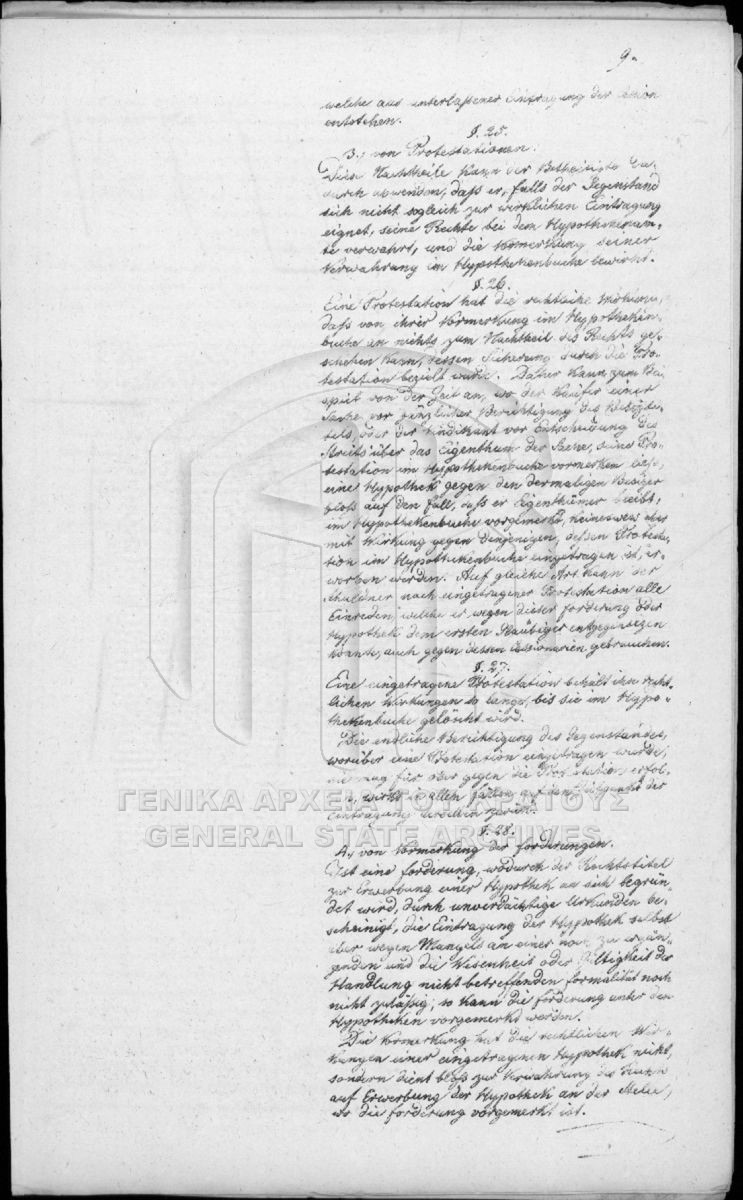 9.
welche aus unterlaßener Eintragung der Cession
entstehen.
§. 25.
3., von Protestationen.
Diese Nachtheile kann der Betheiligte da-
durch abwenden, daß er, falls der Gegenstand
sich nicht sogleich zur wirklichen Eintragung
eignet, seine Rechte bei dem Hypothekenam-
te verwahrt, und die Vormerkung seiner
Verwahrung im Hypothekenbuche bewirkt.
§. 26.
Eine Protestation hat die rechtliche Wirkung,
daß von ihrer Vormerkung im Hypotheken-
buche an nichts zum Nachtheil des Rechts ge-
schehen kann, dessen Sicherung durch die Pro-
testation bezielt wurde. Daher kann zum Bei-
spiel von der Zeit an, wo der Käufer einer
Sache vor gänzlicher Berichtigung des Besitzti-
tels, oder der Vindikant vor Entscheidung des
Streits über das Eigenthum der Sache, seine Pro-
testation im Hypothekenbuche vormerken ließ,
eine Hypothek gegen den dermaligen Besitzer
bloß auf den Fall, daß er Eigenthümer bleibt,
im Hypothekenbuche vorgemerkt, keineswegs aber
mit Wirkung gegen denjenigen, deßen Protesta-
tion im Hypothekenbuche eingetragen ist, er-
worben werden. Auf gleiche Art kann der
Schuldner nach eingetragener Protestation alle
Einreden, welche er wegen dieser Forderung oder
Hypothek dem ersten Gläubiger entgegensezen
konnte, auch gegen dessen Cessionarien gebrauchen.
§. 27.
Eine eingetragene Protestation behält ihre recht-
lichen Wirkungen so lange, bis sie im Hypo-
thekenbuche gelöscht wird.
Die endliche Berichtigung des Gegenstandes,
worüber eine Protestation eingetragen wurde,
sie mag für oder gegen die Protestation erfol-
gen, wirkt in allen Fällen auf den Zeitpunkt der
Eintragung derselben zurück.
ΓΕΝΙΚΑ ΑΡΧΕΙΑ ΤΟΥ ΚΡΑΤΟΥΣ
GENERAL STATE ARCHIVES
§. 28.
4., von Vormerkung der Forderungen.
Ist eine Forderung, wodurch der Rechtstitel
zur Erwerbung einer Hypothek an sich begrün-
det wird, durch unverdächtige Urkunden be-
scheinigt, die Eintragung der Hypothek selbst
aber wegen Mangels an einer noch zu ergän-
zenden und die Wesenheit oder Giltigkeit der
Handlung nicht betreffenden Formalität noch
nicht zuläßig; so kann die Forderung unter den
Hypotheken vorgemerkt werden.
Die Vormerkung hat die rechtlichen Wir-
kungen einer eingetragenen Hypothek nicht,
sondern dient bloß zur Verwahrung des Rechts
auf Erwerbung der Hypothek an der Stelle,
wo die Forderung vorgemerkt ist.